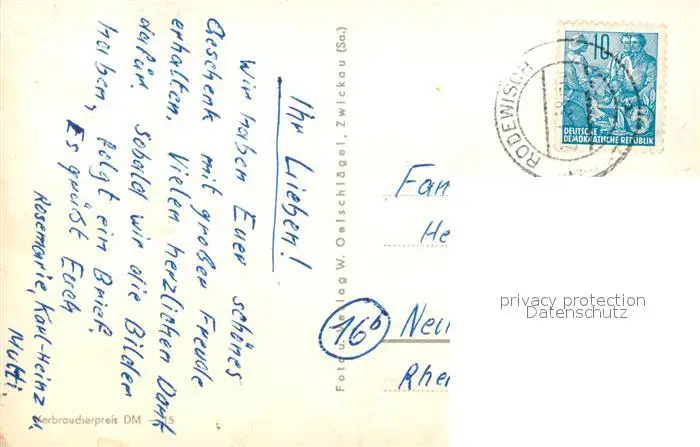 Ihr Lieben!
Wir haben Euer schönes
Geschenk mit großer Freude
erhalten. Vielen herzlichen Dank
dafür. Sobald wir die Bilder
haben, folgt ein Brief.
Es grüßt Euch
Rosemarie, Karl-Heinz u.
Mutti.
Verbraucherpreis DM
Foto u. Verlag W. Oelschlägel, Zwickau (Sa.)
RODEWISCH
10
DEUTSCHE
DEMOKRATISCHE REPUBLIK
Fam
He
16b
Neu
Rhe
privacy protection
Datenschutz